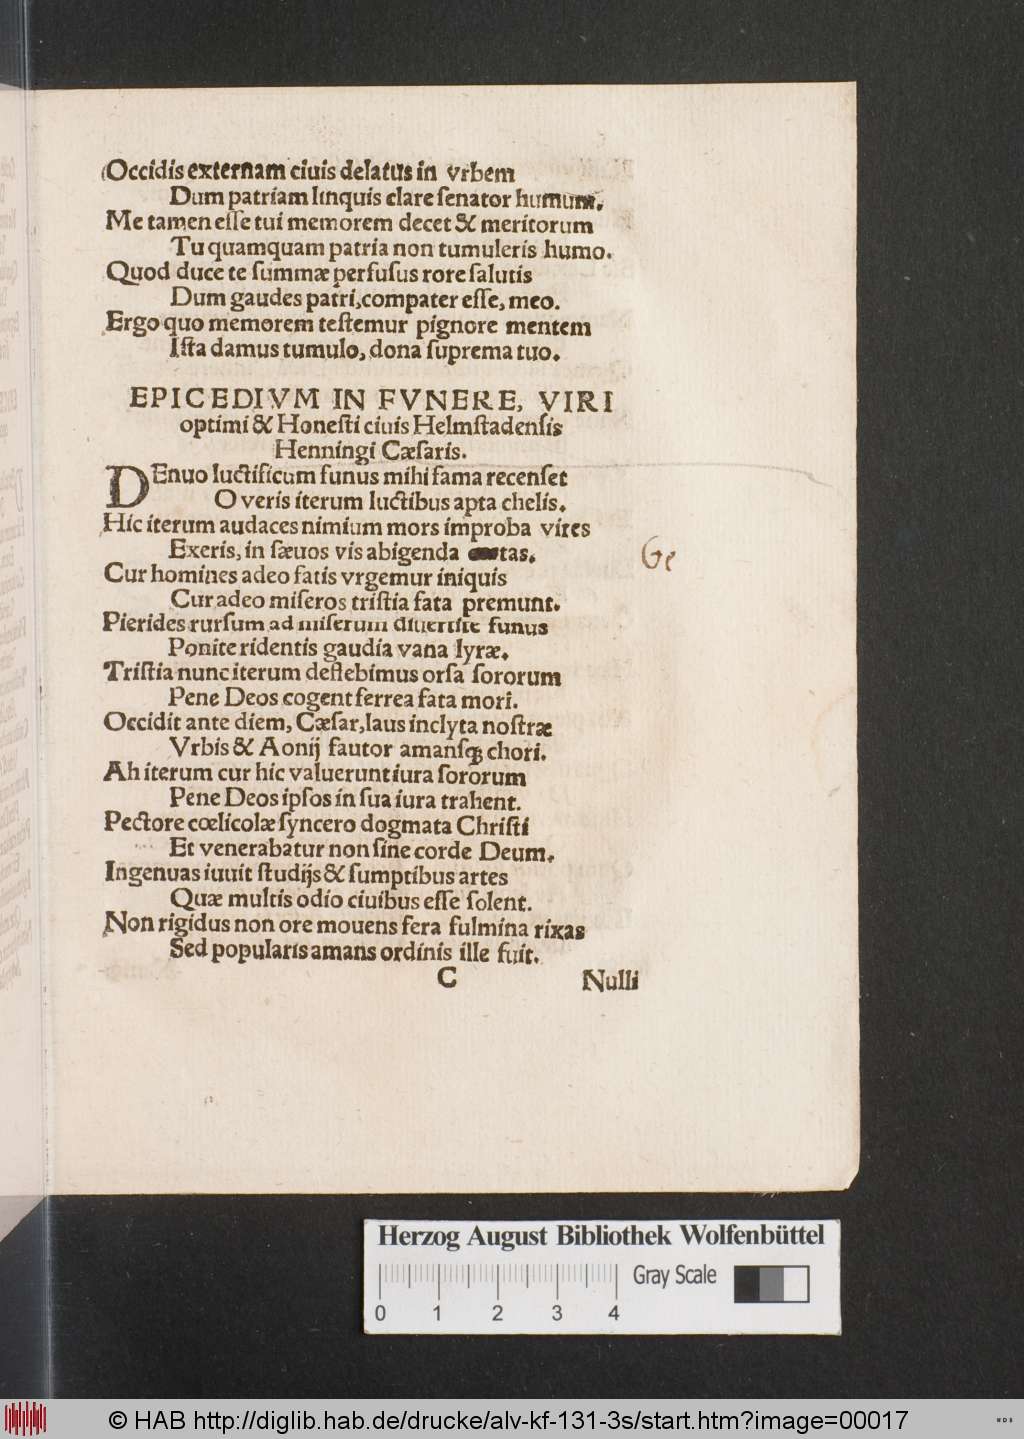 Occidis externam ciuis delatus in vrbem
Dum patriam linquis clare ſenator humum.
Me tamen eſſe tui memorem decet & meritorum
Tu quamquam patria non tumuleris humo.
Quod duce te ſummæ perfuſus rore ſalutis
Dum gaudes patri, compater eſſe, meo.
Ergo quo memorem teſtemur pignore mentem
Iſta damus tumulo, dona ſuprema tuo.
EPICEDIVM IN FVNERE, VIRI
optimi & Honeſti ciuis Helmſtadenſis
Henningi Cæſaris.
DEnuo luctificum funus mihi fama recenſet
O veris iterum luctibus apta chelis.
Hic iterum audaces nimium mors improba vires
Exeris, in ſæuos vis abigenda tas.
Ge
Cur homines adeo fatis vrgemur iniquis
Cur adeo miſeros triſtia fata premunt.
Pierides rurſum ad miſerum diuertite funus
Ponite ridentis gaudia vana lyræ.
Triſtia nunc iterum deflebimus orſa ſororum
Pene Deos cogent ferrea fata mori.
Occidit ante diem, Cæſar, laus inclyta noſtræ
Vrbis & Aonij fautor amanſq; chori.
Ah iterum cur hic valuerunt iura ſororum
Pene Deos ipſos in ſua iura trahent.
Pectore cœlicolæ ſyncero dogmata Chriſti
Et venerabatur non ſine corde Deum.
Ingenuas iuuit ſtudijs & ſumptibus artes
Quæ multis odio ciuibus eſſe ſolent.
Non rigidus non ore mouens fera fulmina rixas
Sed popularis amans ordinis ille fuit.
C Nulli
Herzog August Bibliothek Wolfenbüttel
Gray Scale
0 1 2 3 4
© HAB http://diglib.hab.de/drucke/alv-kf-131-3s/start.htm?image=00017